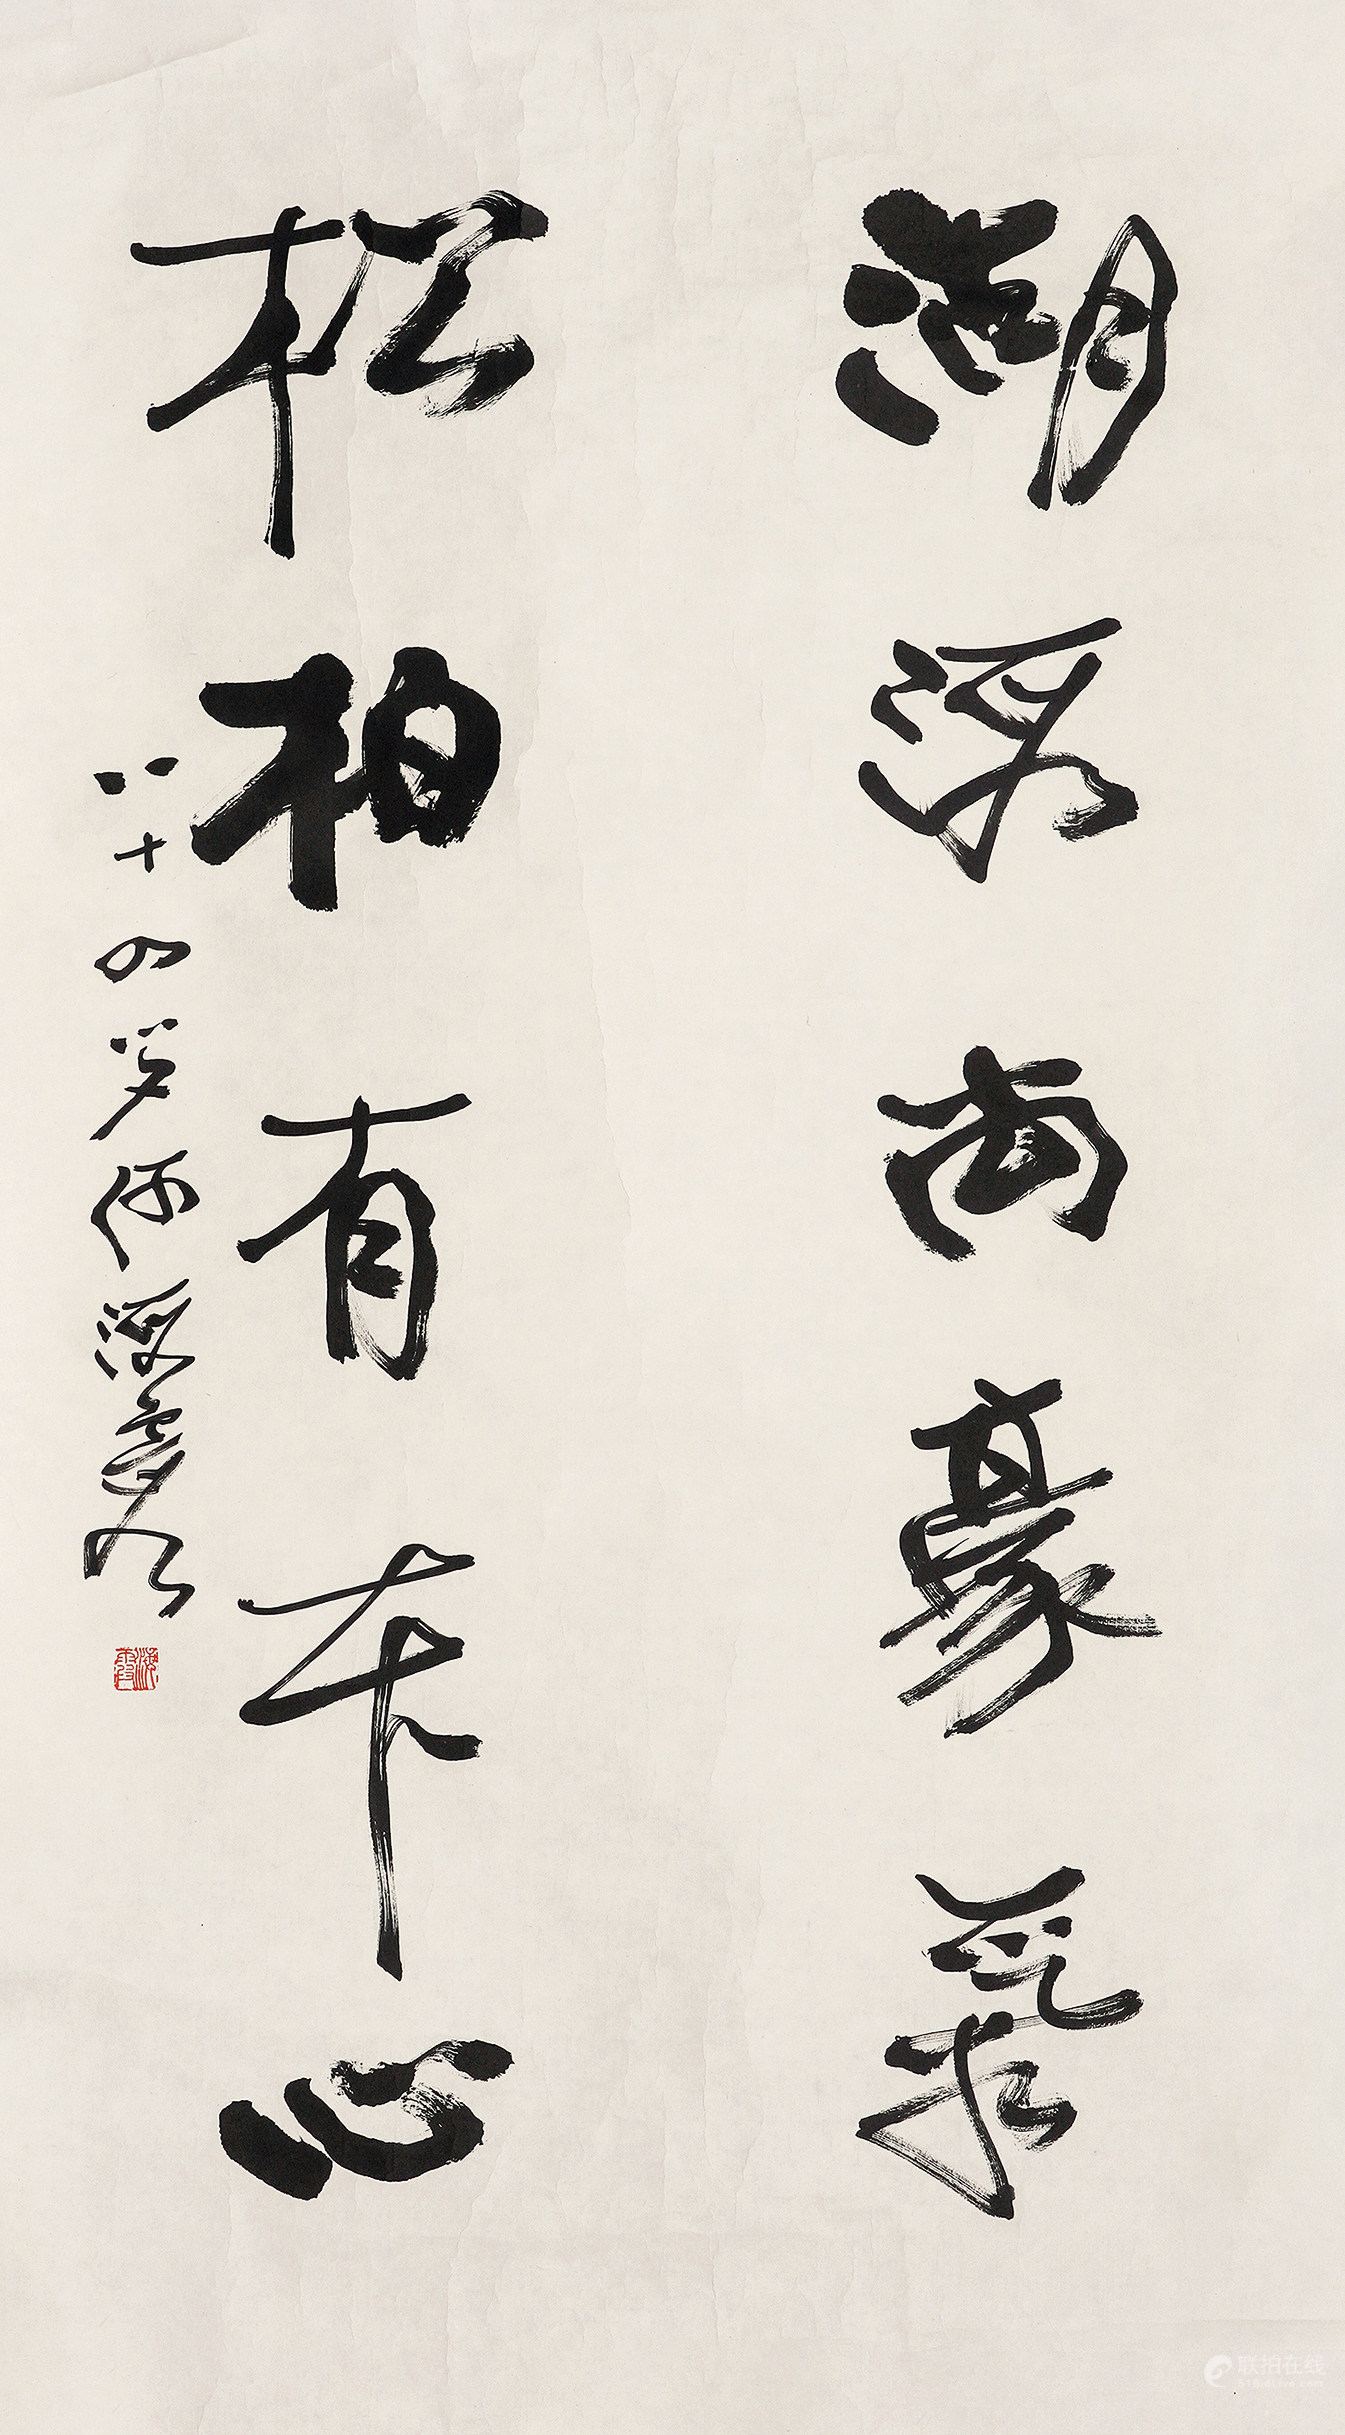 湖海尚豪气
松柏有本心
八十四岁何海霞
海霞
联拍在线